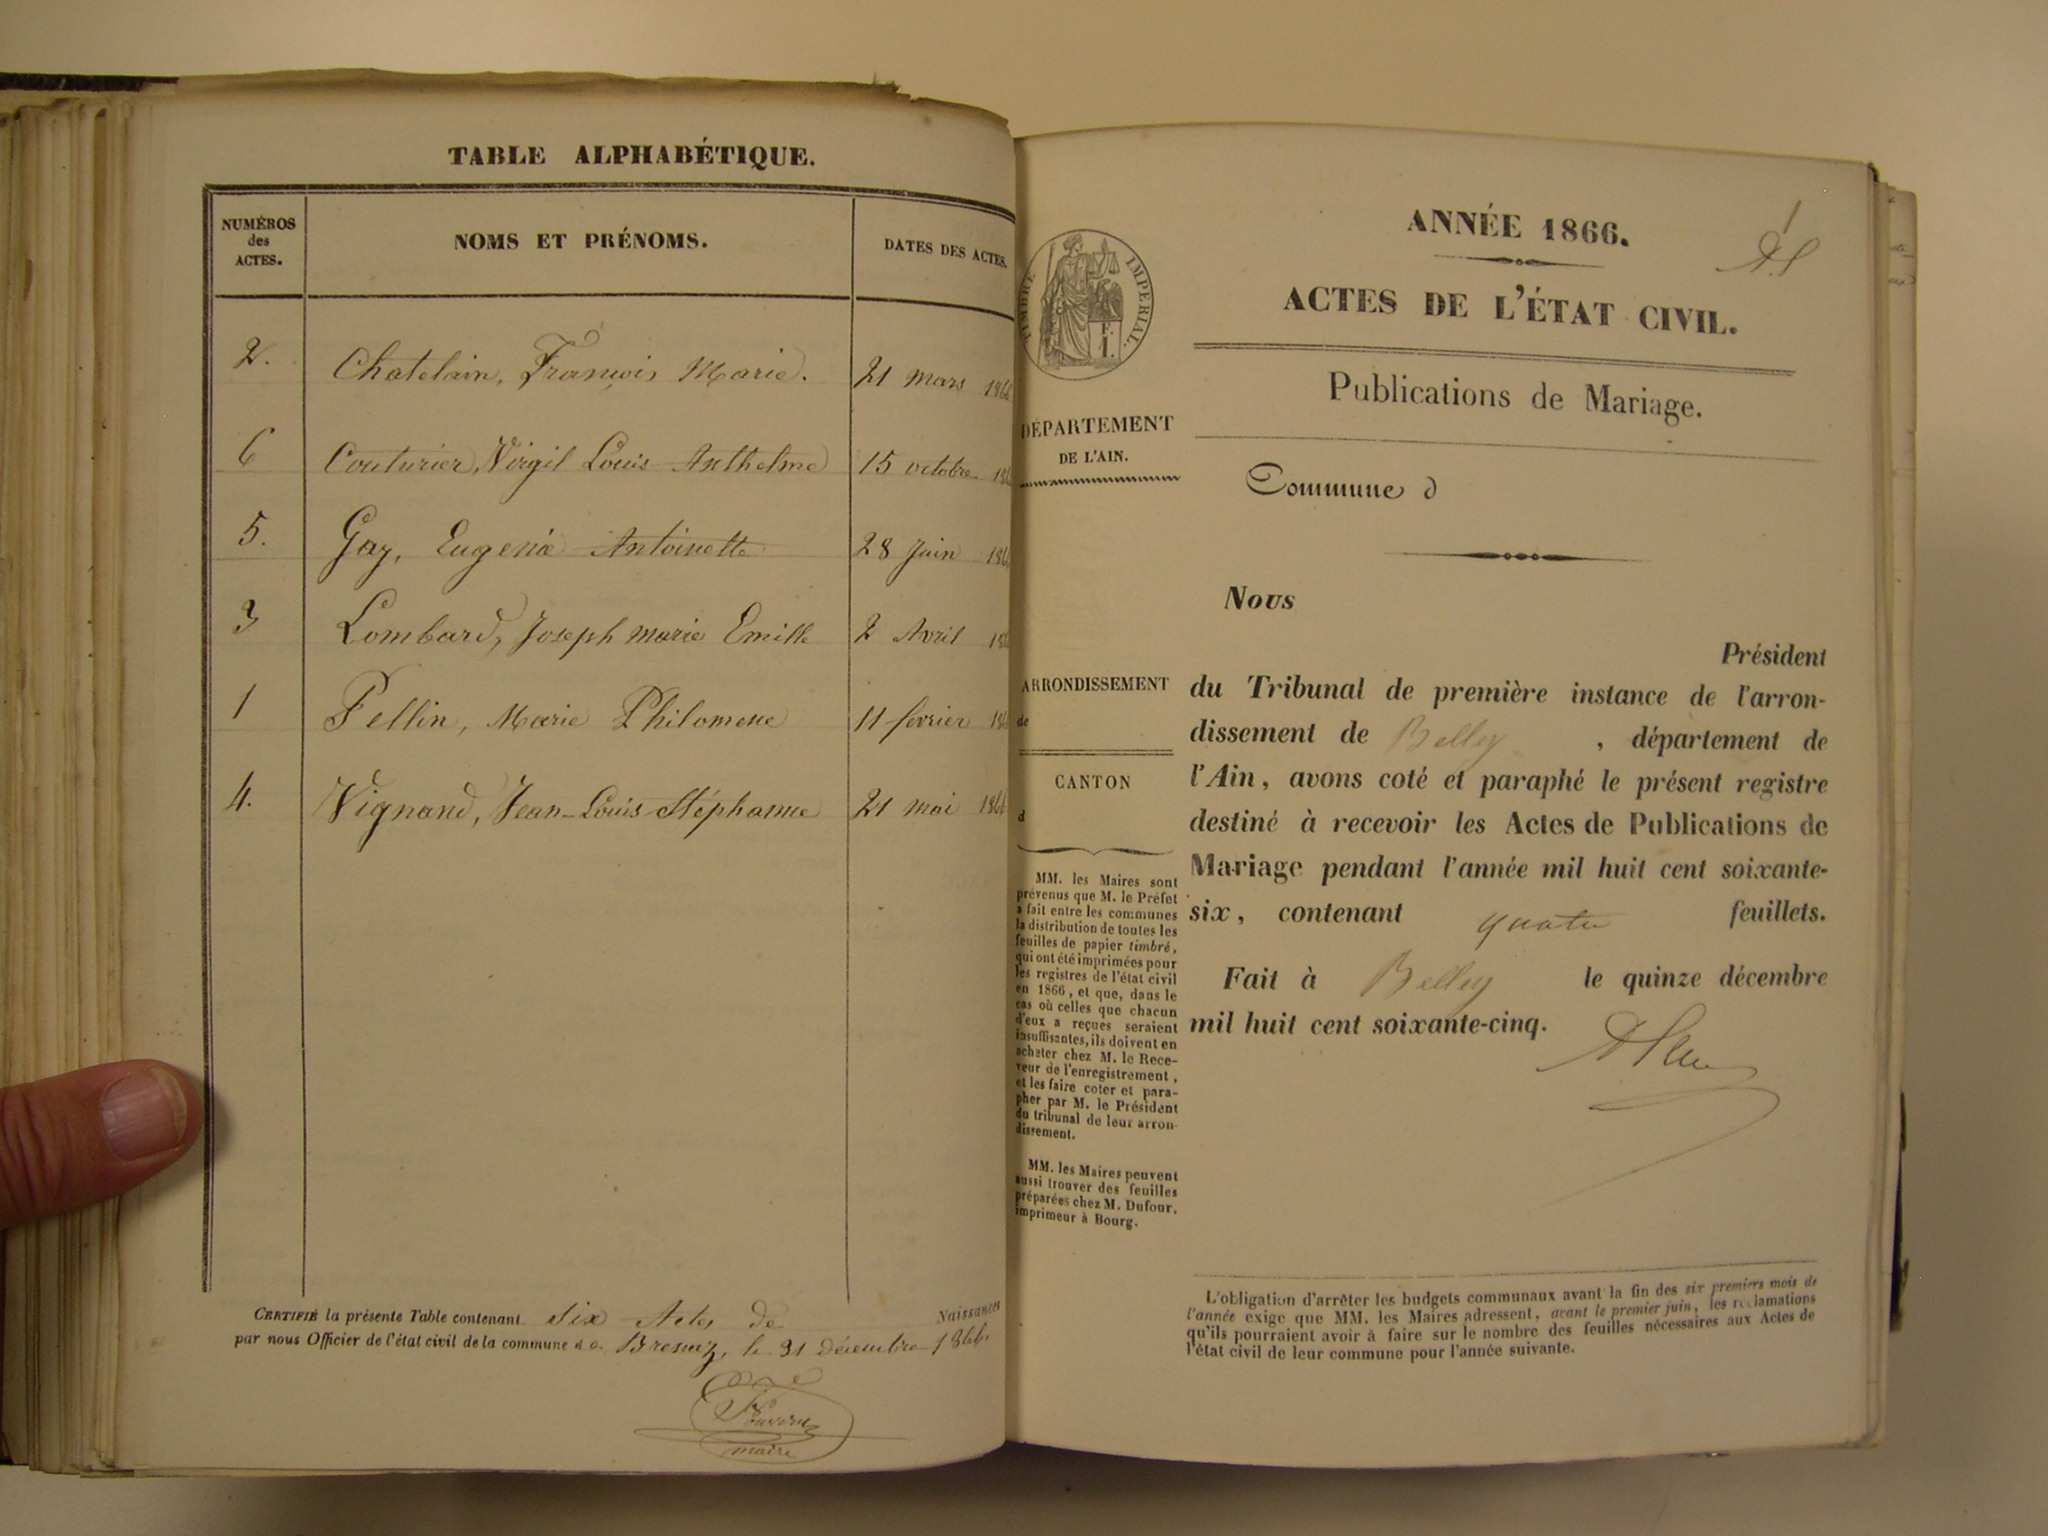 TABLE ALPHABÉTIQUE.
NUMÉROS
des
ACTES.
NOMS ET PRÉNOMS.
DATES DES ACTES.
2. Chatelain, François Marie. 21 mars
6 Couturier, Virgil Louis Anthelme 15 octobre
5. Gay, Eugenie Antoinette 28 Juin
3 Lombard, Joseph marie Emille 2 Avril
1 Pellin, Marie Philomene 11 fevrier
4. Vignand, Jean-Louis Stéphanne 21 mai
CERTIFIÉ la présente Table contenant six Actes de Naissances
par nous Officier de l'état civil de la commune de le 31 décembre 1866.
maire
ANNÉE 1866.
ACTES DE L'ÉTAT CIVIL.
Publications de Mariage.
TIMBRE IMPERIAL.
DÉPARTEMENT
DE L'AIN.
Commune d
Nous
Président
ARRONDISSEMENT
de
CANTON
d
du Tribunal de première instance de l'arron-
dissement de Belley , département de
l'Ain, avons coté et paraphé le présent registre
destiné à recevoir les Actes de Publications de
Mariage pendant l'année mil huit cent soixante-
six, contenant quatre feuillets.
Fait à Belley le quinze décembre
mil huit cent soixante-cinq.
MM. les Maires sont
prévenus que M. le Préfet
a fait entre les communes
la distribution de toutes les
feuilles de papier timbré,
qui ont été imprimées pour
les registres de l'état civil
en 1866, et que, dans le
cas où celles que chacun
d'eux a reçues seraient
insuffisantes, ils doivent en
acheter chez M. le Rece-
veur de l'enregistrement,
et les faire coter et para-
pher par M. le Président
du tribunal de leur arron-
dissement.
MM. les Maires peuvent
aussi trouver des feuilles
préparées chez M. Dufour,
imprimeur à Bourg.
L'obligation d'arrêter les budgets communaux avant la fin des six premiers mois de
l'année exige que MM. les Maires adressent, avant le premier juin, les réclamations
qu'ils pourraient avoir à faire sur le nombre des feuilles nécessaires aux Actes de
l'état civil de leur commune pour l'année suivante.